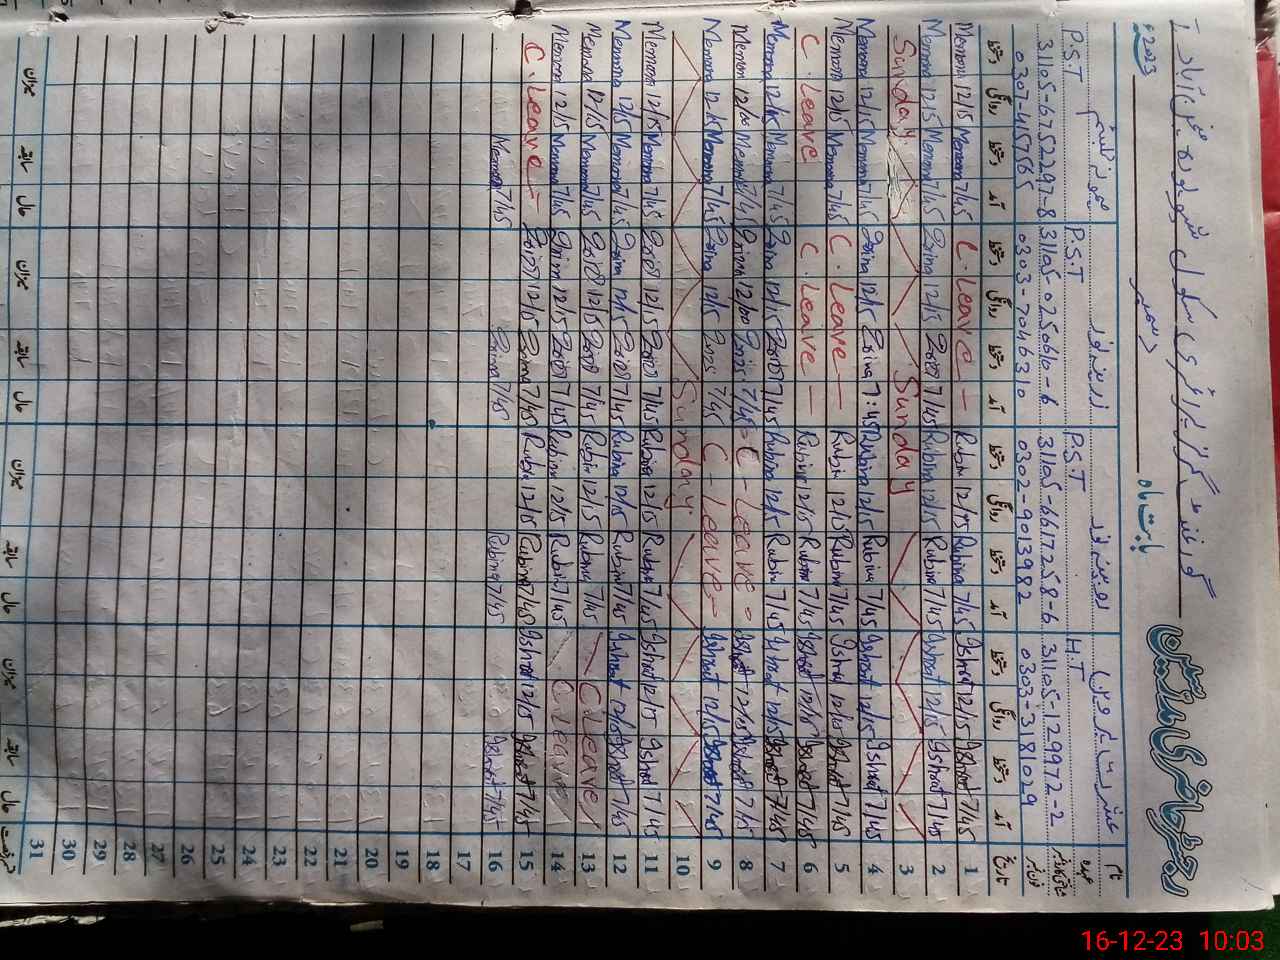 رجسٹر حاضری مدرسین
گورنمنٹ گرلز پرائمری سکول
بابت ماہ دسمبر 2023ء
نام
عہدہ H.T P.S.T P.S.T P.S.T
31105-129972-2 31105-6617258-6 31105-0250616-6 31105-6752297-8
0303-3181029 0302-9013982 0303-7046310 0307-4157565
تاریخ آمد دستخط روانگی دستخط آمد دستخط روانگی دستخط آمد دستخط روانگی دستخط آمد دستخط روانگی دستخط
1 7/45 Ishrat 12/15 Ishrat 7/45 Rubina 12/15 Rubina C. Leave 7/45 Memona 12/15 Memona
2 7/45 Ishrat 12/15 Ishrat 7/45 Rubina 12/15 Rubina 7/45 12/15 Zarina 7/45 Memona 12/15 Memona
3 Sunday Sunday
4 7/45 Ishrat 12/15 Ishrat 7/45 Rubina 12/15 Rubina 7:45 Zarina 12/15 Zarina 7/45 Memona 12/15 Memona
5 7/45 Ishrat 12/15 Ishrat 7/45 Rubina 12/15 Rubina C. Leave 7/45 Memona 12/15 Memona
6 7/45 Ishrat 12/15 Ishrat 7/45 Rubina 12/15 Rubina C. Leave C. Leave
7 7/45 Ishrat 12/15 Ishrat 7/45 Rubina 12/15 Rubina 7/45 12/15 Zarina 7/45 Memona 12/15 Memona
8 7/45 Ishrat 12/15 Ishrat C - Leave 7/45 12/00 7/45 Memona 12/00 Memona
9 7/45 Ishrat 12/15 Ishrat C - Leave 7/45 12/15 Zarina 7/45 Memona 12/15 Memona
10 Sunday
11 7/45 Ishrat 12/15 Ishrat 7/45 Rubina 12/15 Rubina 7/45 12/15 7/45 Memona 12/15 Memona
12 7/45 Ishrat 12/15 Ishrat 7/45 Rubina 12/15 Rubina 7/45 12/15 Zarina 7/45 Memona 12/15 Memona
13 C. Leave 7/45 Rubina 12/15 Rubina 7/45 12/15 7/45 Memona 12/15 Memona
14 C. Leave 7/45 Rubina 12/15 Rubina 7/45 12/15 Zarina 7/45 Memona 12/15 Memona
15 7/45 Ishrat 12/15 Ishrat 7/45 Rubina 12/15 Rubina 7/45 Zarina 12/15 C. Leave
16 7/45 Ishrat 7/45 Rubina 7/45 Zarina 7/45 Memona
17
18
19
20
21
22
23
24
25
26
27
28
29
30
31
حال سابقہ میزان حال سابقہ میزان حال سابقہ میزان حال سابقہ میزان
16-12-23 10:03